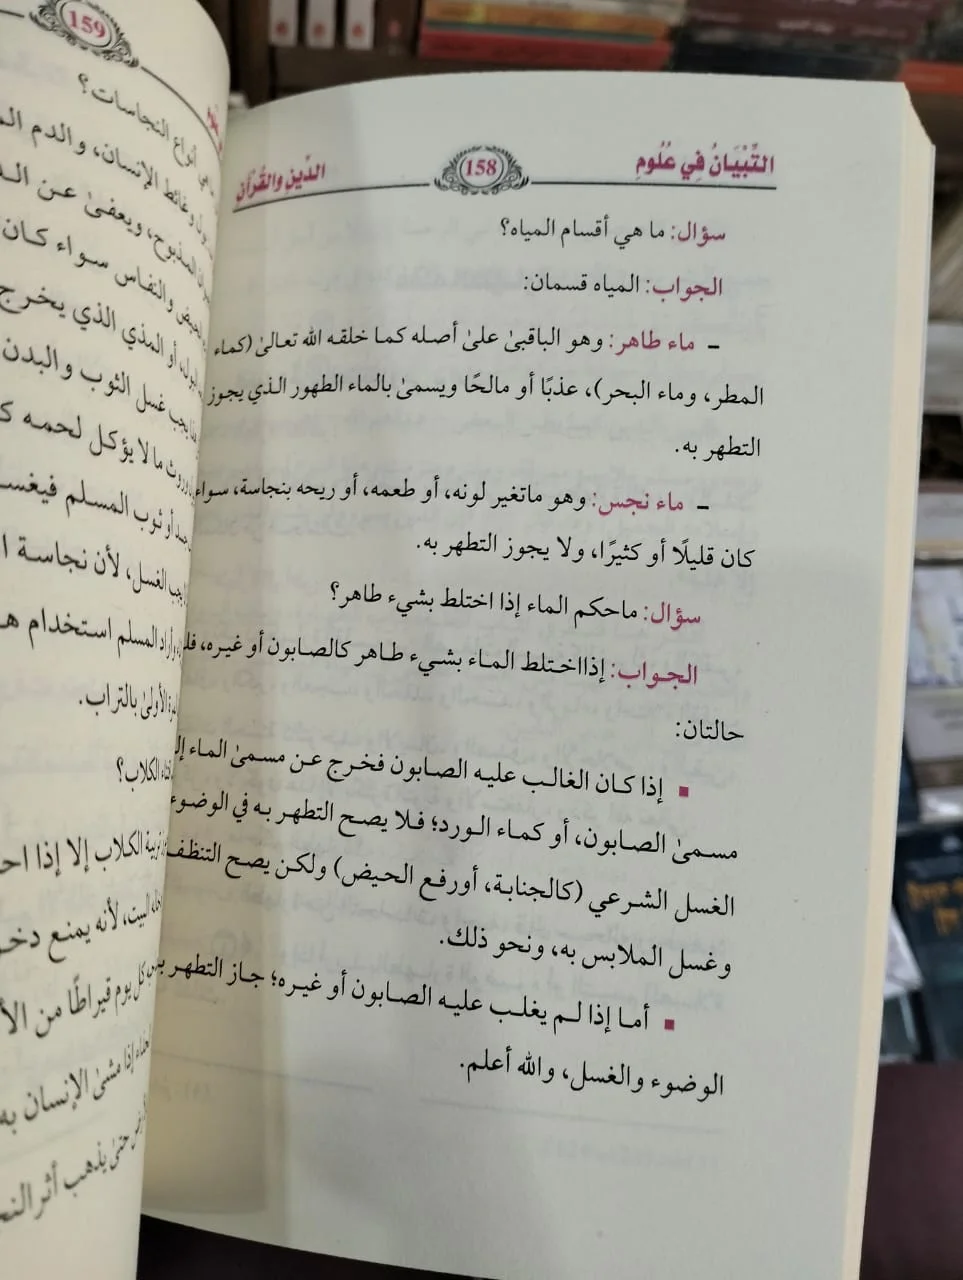 التِّبْيَانُ فِي عُلُومِ
158
الدِّينِ وَالقُرْآنِ
سؤال: ما هي أقسام المياه؟
الجواب: المياه قسمان:
- ماء طاهر: وهو الباقيىٰ علىٰ أصله كما خلقه الله تعالىٰ (كماء
المطر، وماء البحر)، عذبًا أو مالحًا ويسمىٰ بالماء الطهور الذي يجوز
التطهر به.
- ماء نجس: وهو ماتغير لونه، أو طعمه، أو ريحه بنجاسة، سواء
كان قليلًا أو كثيرًا، ولا يجوز التطهر به.
سؤال: ماحكم الماء إذا اختلط بشيء طاهر؟
الجواب: إذااختلط الماء بشيء طاهر كالصابون أو غيره،
حالتان:
▪ إذا كان الغالب عليه الصابون فخرج عن مسمىٰ الماء
مسمىٰ الصابون، أو كماء الورد؛ فلا يصح التطهر به في الوضوء
الغسل الشرعي (كالجنابة، أورفع الحيض) ولكن يصح
وغسل الملابس به، ونحو ذلك.
▪ أما إذا لم يغلب عليه الصابون أو غيره؛ جاز التطهر
الوضوء والغسل، والله أعلم.
159
أنواع النجاسات؟
وغائط الإنسان، والدم
ويعفىٰ عن
والنفاس سواء كان
أو المذي الذي يخرج
يجب غسل الثوب والبدن
وروث ما لا يؤكل لحمه
أو ثوب المسلم
الغسل، لأن نجاسة
المسلم استخدام
الأولىٰ بالتراب.
الكلاب؟
تربية الكلاب إلا إذا
البيت، لأنه يمنع
كل يوم قيراطًا من
إذا مشىٰ الإنسان
حتىٰ يذهب أثر